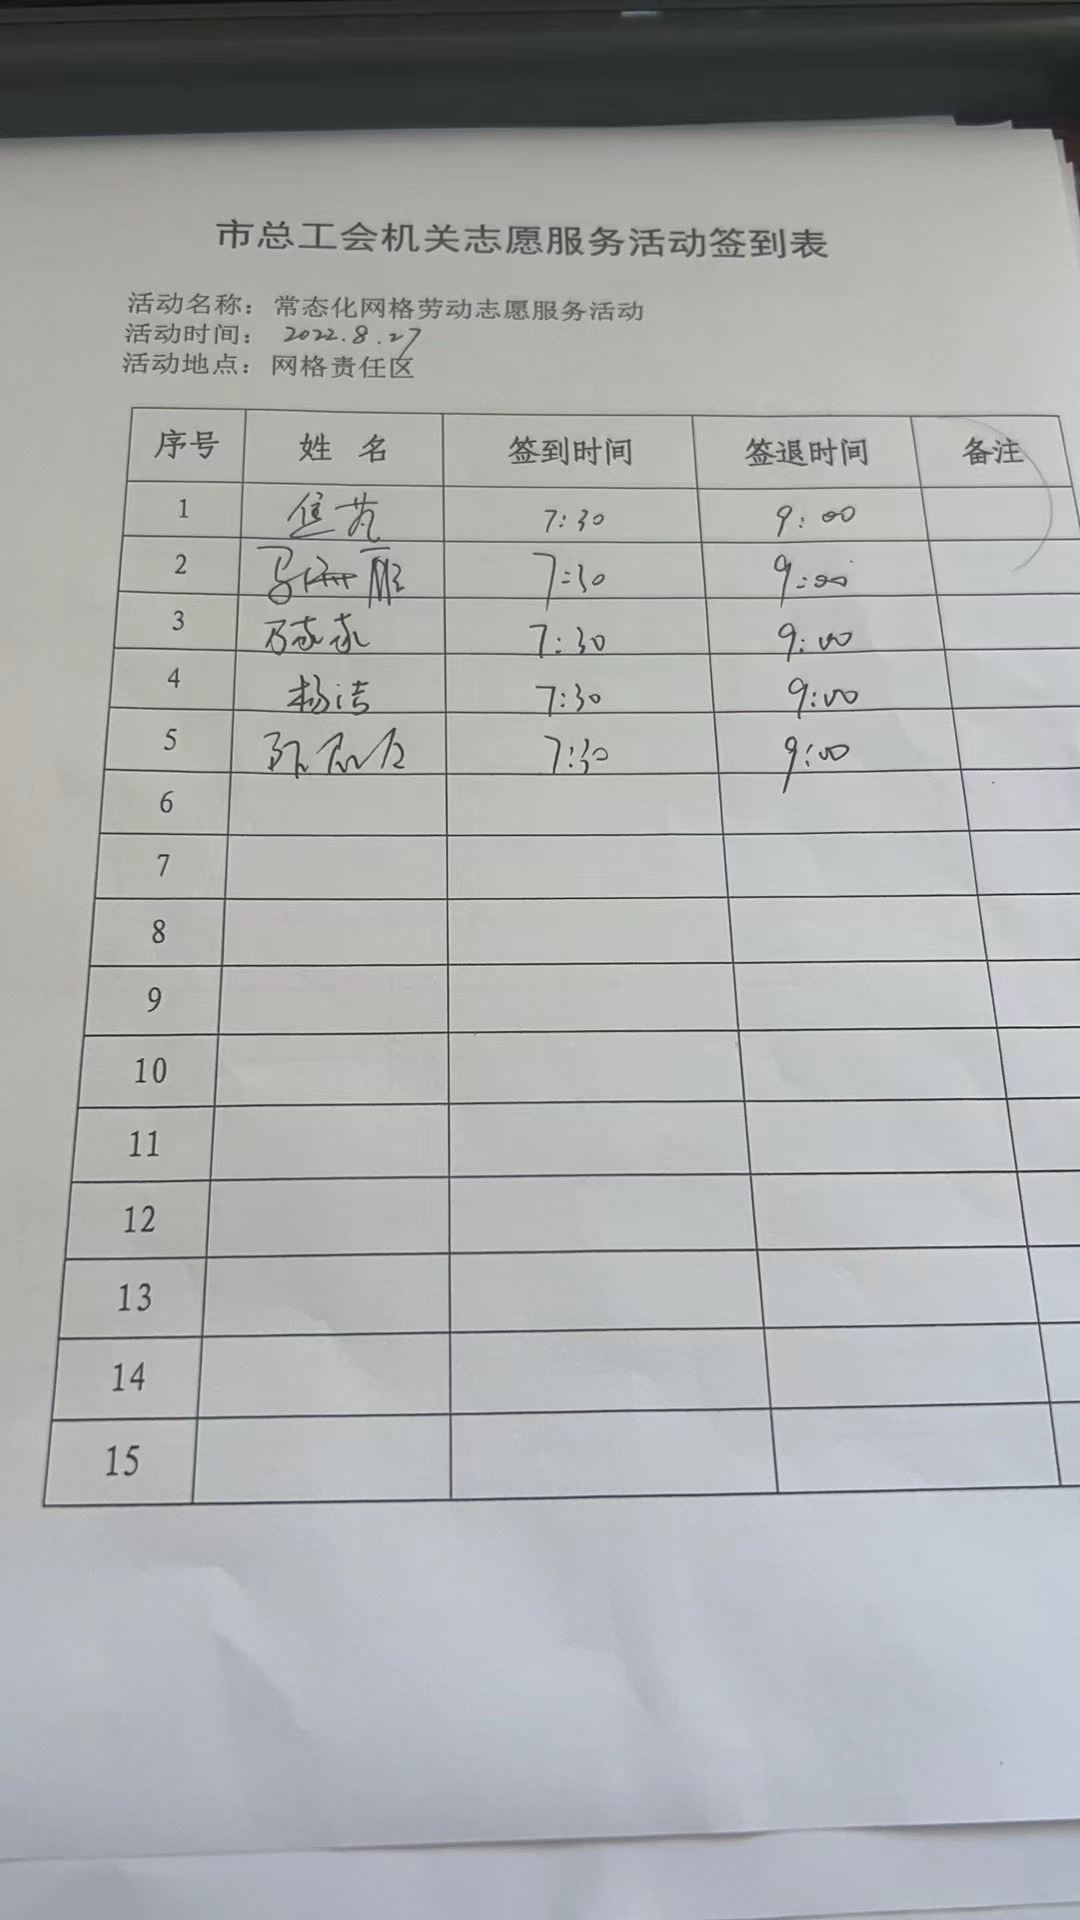 市总工会机关志愿服务活动签到表
活动名称：常态化网格劳动志愿服务活动
活动时间：2022.8.27
活动地点：网格责任区
序号 姓名 签到时间 签退时间 备注
1 焦 7:30 9:00
2 7:30 9:00
3 7:30 9:00
4 杨洁 7:30 9:00
5 7:30 9:00
6
7
8
9
10
11
12
13
14
15